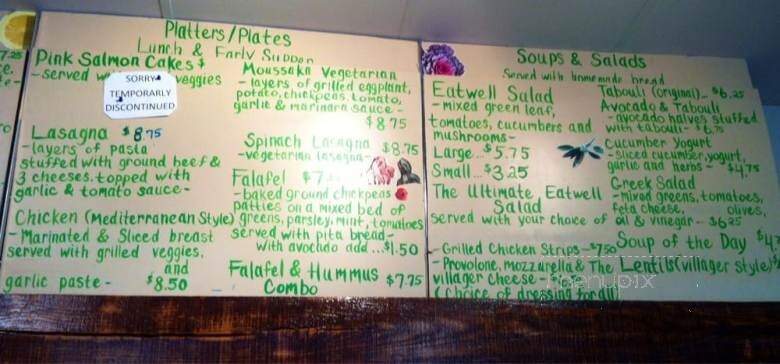 Platters/Plates
Lunch & Early Supper
Pink Salmon Cakes $
- served veggies
SORRY
TEMPORARLY
DISCONTINUED
Lasagna $8.75
- layers of pasta
stuffed with ground beef &
3 cheeses. topped with
garlic & tomato sauce -
Chicken (Mediterranean Style)
- Marinated & Sliced breast
served with grilled veggies,
and
garlic paste - $8.50
Moussaka Vegetarian
- layers of grilled eggplant,
potato, chickpeas, tomato,
garlic & marinara sauce -
$8.75
Spinach Lasagna $8.75
- vegetarian lasagna -
Falafel
- baked ground chickpeas
patties on a mixed bed of
greens, parsley, mint, tomatoes
served with pita bread -
with avocado add...$1.50
Falafel & Hummus
Combo $7.75
Soups & Salads
Served with homemade bread
Eatwell Salad
- mixed green leaf,
tomatoes, cucumbers and
mushrooms -
Large...$5.75
Small...$3.25
The Ultimate Eatwell
Salad
served with your choice of
- Grilled Chicken Strips - $7.50
- Provolone, mozzarella &
villager cheese -
(choice of dressing for all)
Tabouli (original)... $6.25
Avocado & Tabouli
- avocado halves stuffed
with tabouli -
Cucumber Yogurt
- sliced cucumber, yogurt,
garlic and herbs - $4.75
Greek Salad
- mixed greens, tomatoes,
feta cheese, olives,
oil & vinegar - $6.25
Soup of the Day
The Lentils (villager style)
menupix